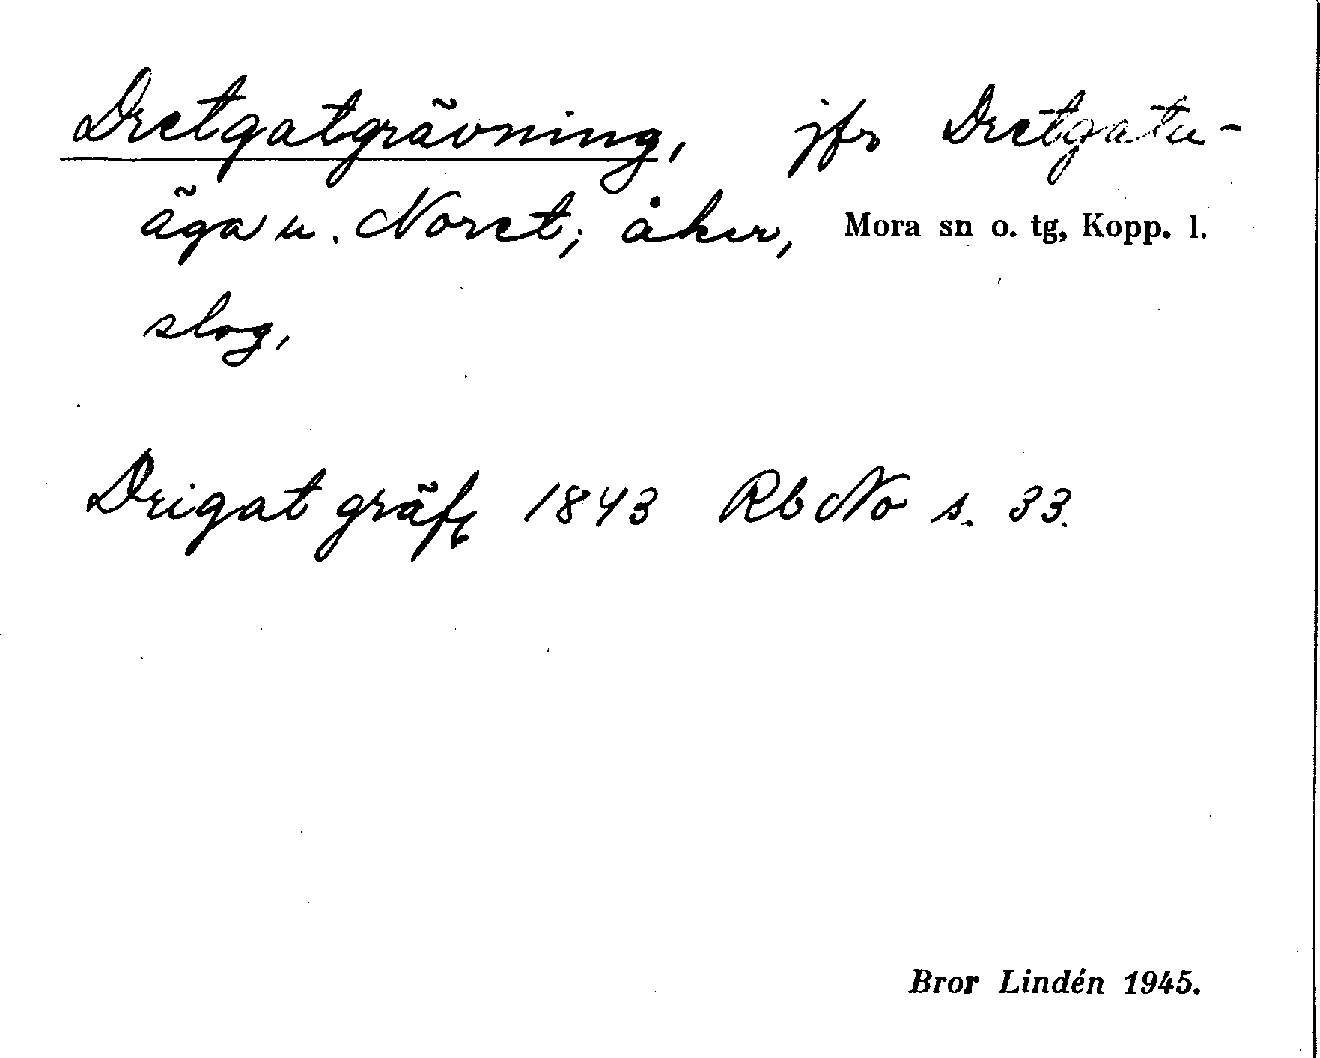 Dretgatgrävning, jfr Dretgatu-
äga u. Noret; åker, Mora sn o. tg, Kopp. l.
slog,
Drigat gräfg 1843 Rb No s. 33.
Bror Lindén 1945.